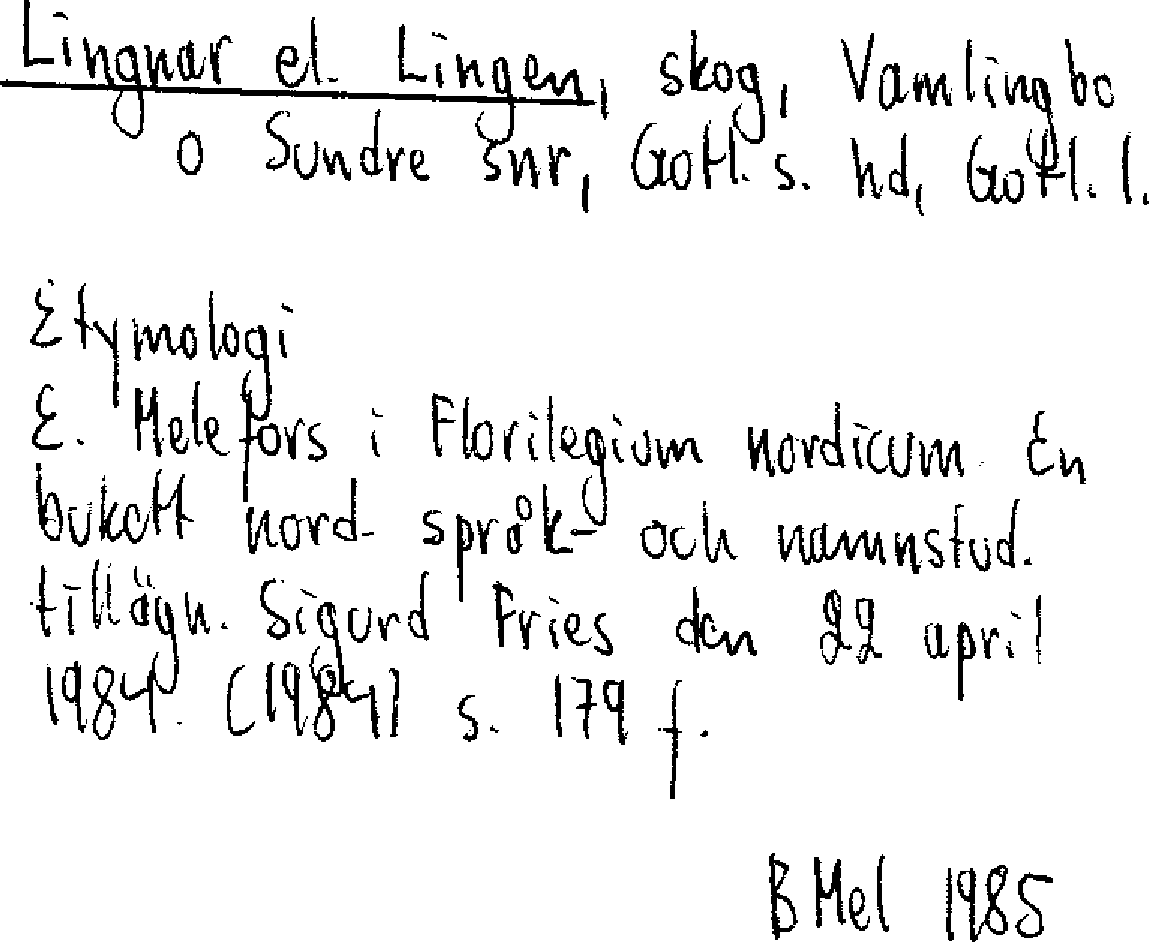 Lingnar el. Lingen, skog, Vamlingbo
o Sundre snr, Gotl. s. hd, Gotl. l.
Etymologi
E. Melefors i Florilegium nordicum. En
bukett nord. språk- och namnstud.
tillägn. Sigurd Fries den 22 april
1984. (1984) s. 179 f.
B Mel 1985